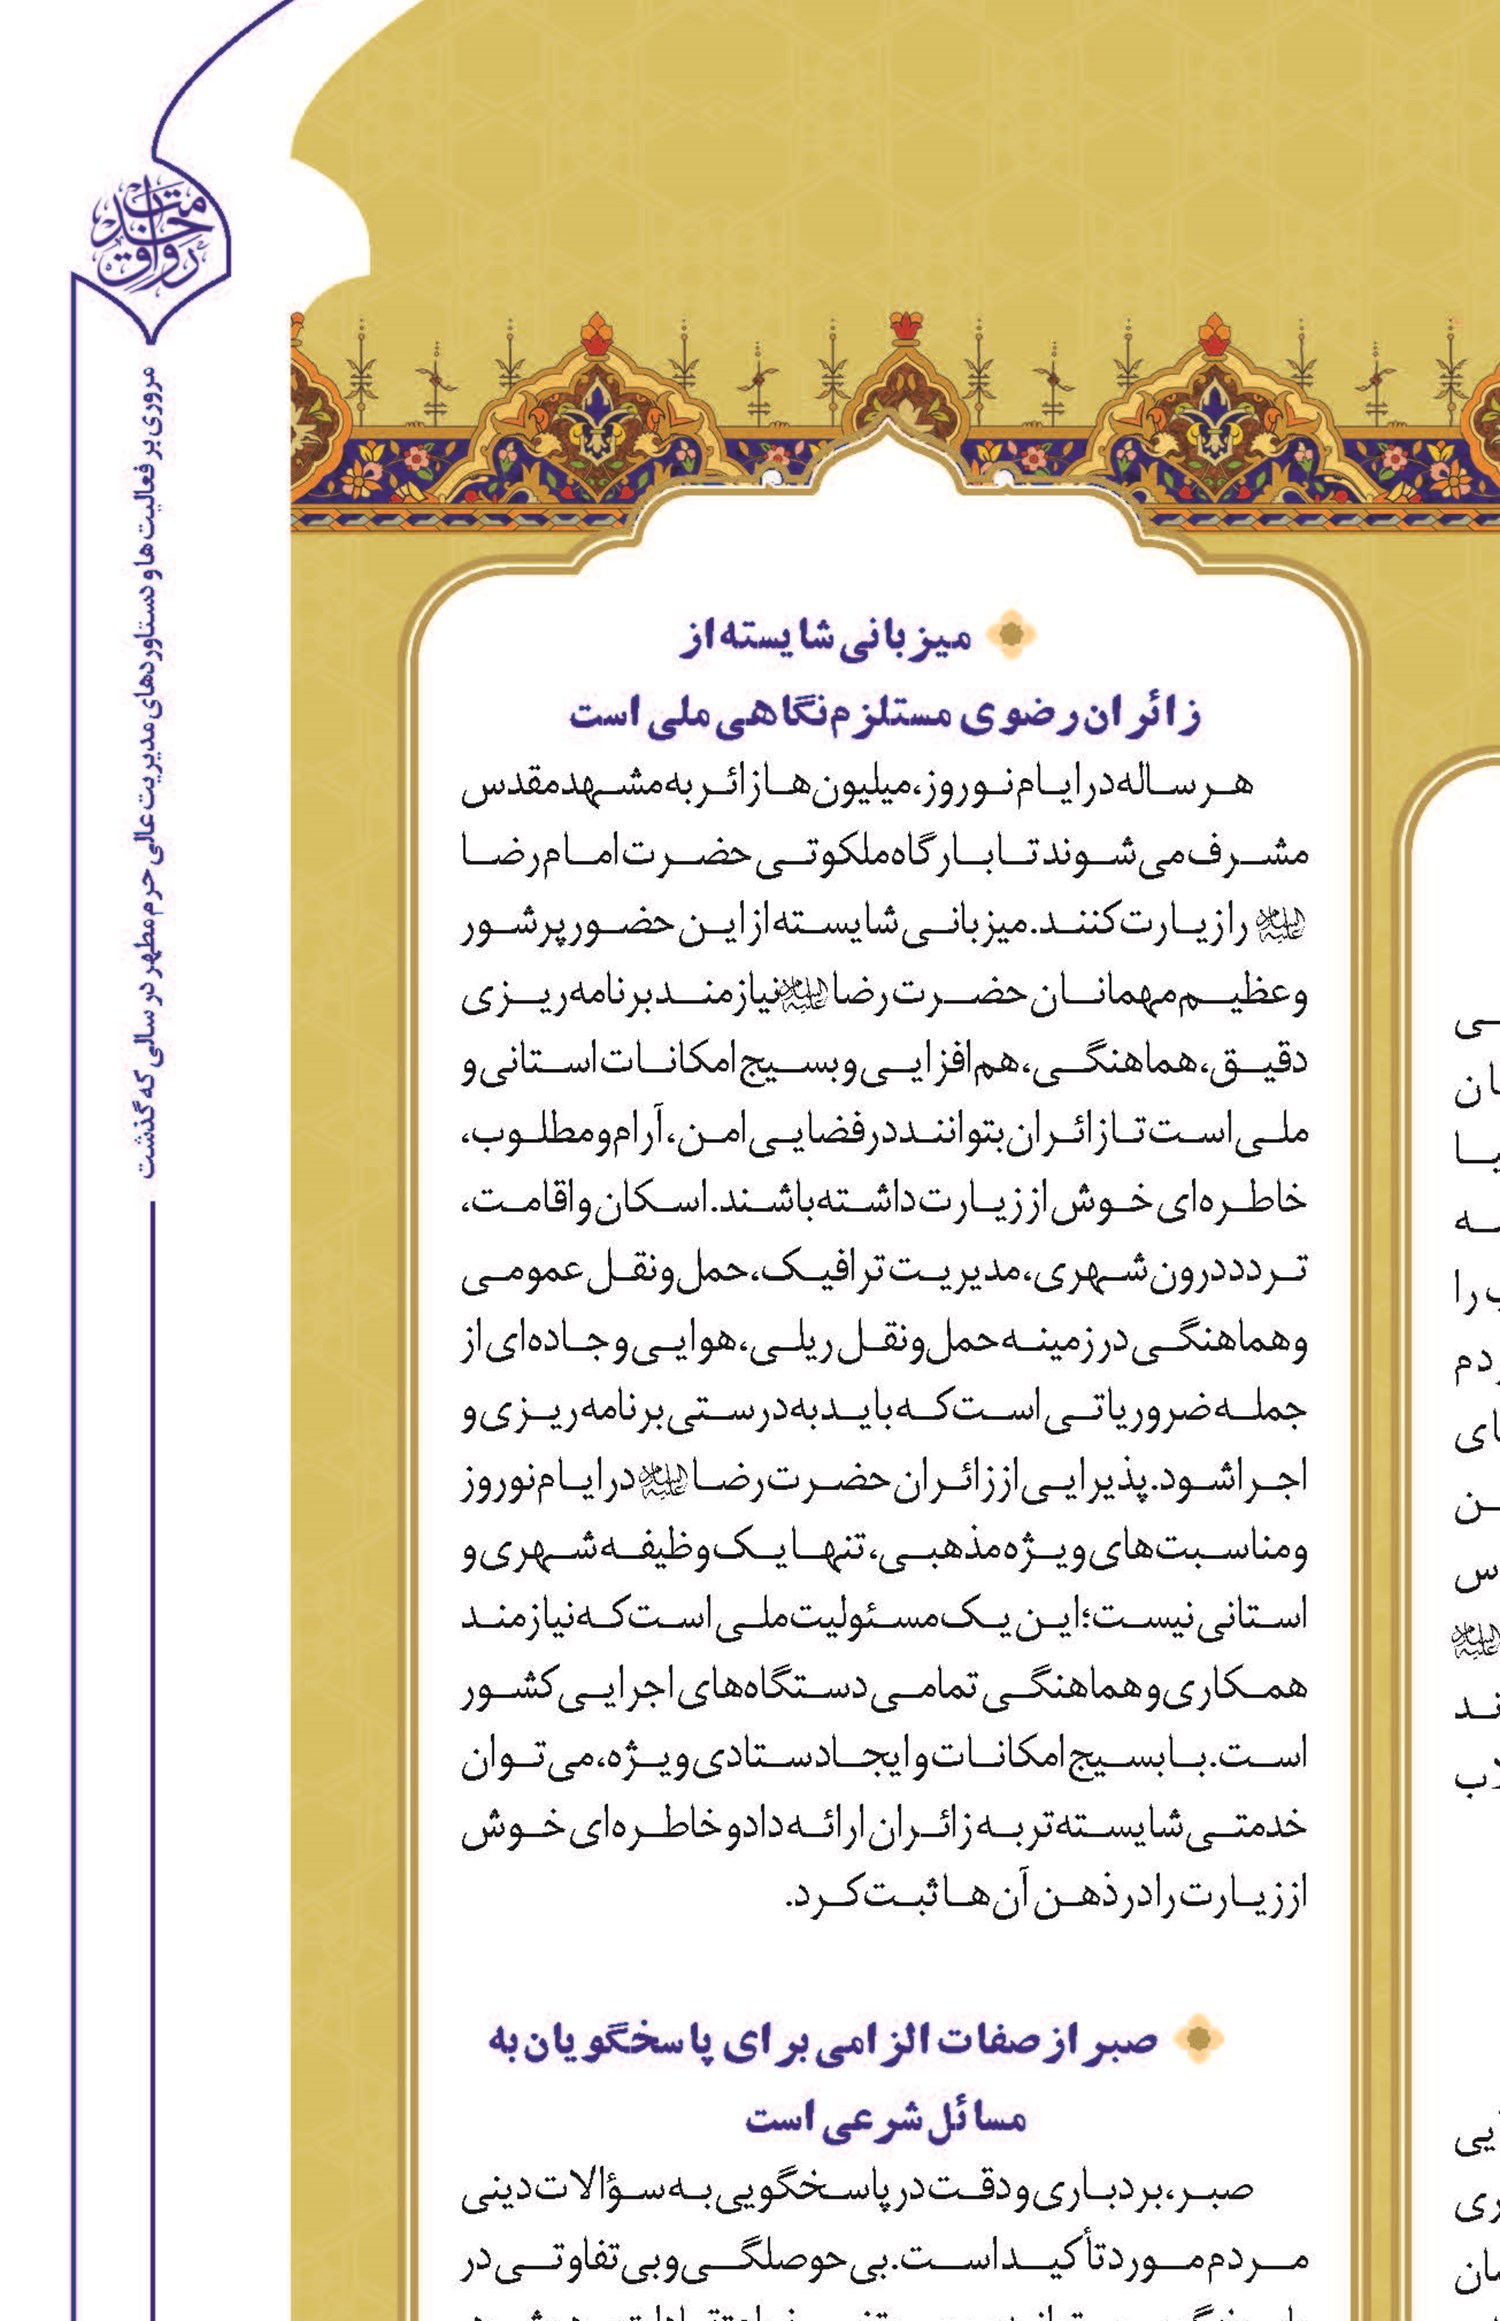 رواق خدمت
مروری بر فعالیت ها و دستاوردهای مدیریت عالی حرم مطهر در سالی که گذشت
میزبانی شایسته از
زائران رضوی مستلزم نگاهی ملی است
هر ساله در ایام نوروز، میلیون ها زائر به مشهد مقدس
مشرف می شوند تا بارگاه ملکوتی حضرت امام رضا
علیه‌السلام را زیارت کنند. میزبانی شایسته از این حضور پرشور
و عظیم مهمانان حضرت رضا علیه‌السلام نیازمند برنامه ریزی
دقیق، هماهنگی، هم افزایی و بسیج امکانات استانی و
ملی است تا زائران بتوانند در فضایی امن، آرام و مطلوب،
خاطره ای خوش از زیارت داشته باشند. اسکان و اقامت،
تردد درون شهری، مدیریت ترافیک، حمل و نقل عمومی
و هماهنگی در زمینه حمل و نقل ریلی، هوایی و جاده ای از
جمله ضروریاتی است که باید به درستی برنامه ریزی و
اجرا شود. پذیرایی از زائران حضرت رضا علیه‌السلام در ایام نوروز
و مناسبت های ویژه مذهبی، تنها یک وظیفه شهری و
استانی نیست؛ این یک مسئولیت ملی است که نیازمند
همکاری و هماهنگی تمامی دستگاه های اجرایی کشور
است. با بسیج امکانات و ایجاد ستادی ویژه، می توان
خدمتی شایسته تر به زائران ارائه داد و خاطره ای خوش
از زیارت را در ذهن آن ها ثبت کرد.
صبر از صفات الزامی برای پاسخگویان به
مسائل شرعی است
صبر، بردباری و دقت در پاسخگویی به سؤالات دینی
مردم مورد تأکید است. بی حوصلگی و بی تفاوتی در